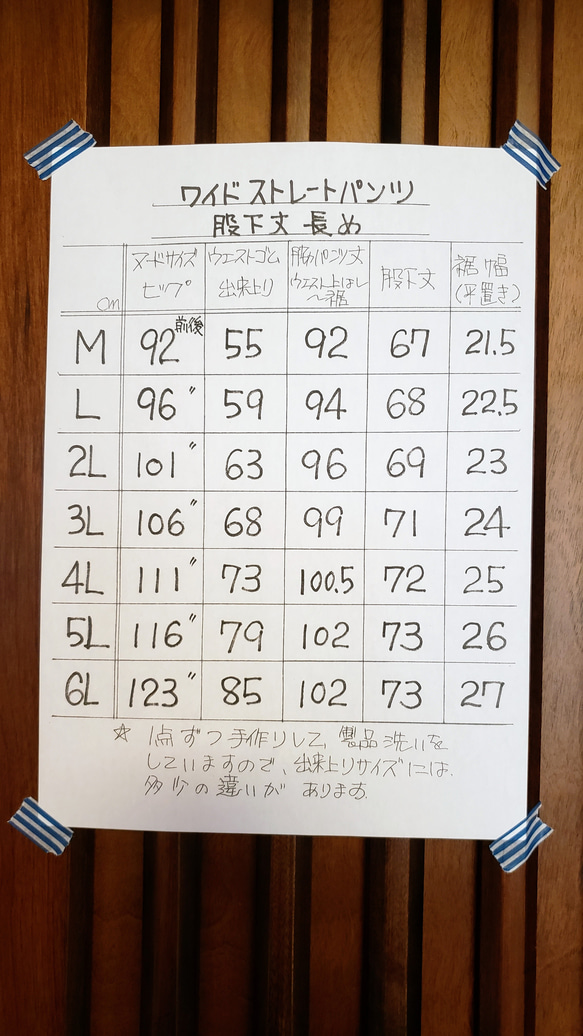 ワイドストレートパンツ
股下丈 長め
cm ヌードサイズ ヒップ ウエストゴム 出来上り 脇パンツ丈 ウエスト上はし〜裾 股下丈 裾幅 (平置き)
M 92 前後 55 92 67 21.5
L 96 〃 59 94 68 22.5
2L 101 〃 63 96 69 23
3L 106 〃 68 99 71 24
4L 111 〃 73 100.5 72 25
5L 116 〃 79 102 73 26
6L 123 〃 85 102 73 27
☆ 1点ずつ手作りして、製品洗いを
していますので、出来上りサイズには、
多少の違いが あります。